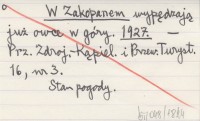 W Zakopanem wypędzają
już owce w góry. 1927. —
Prz. Zdroj.-Kąpiel. i Przew. Turyst.
16, nr 3.
Stan pogody.